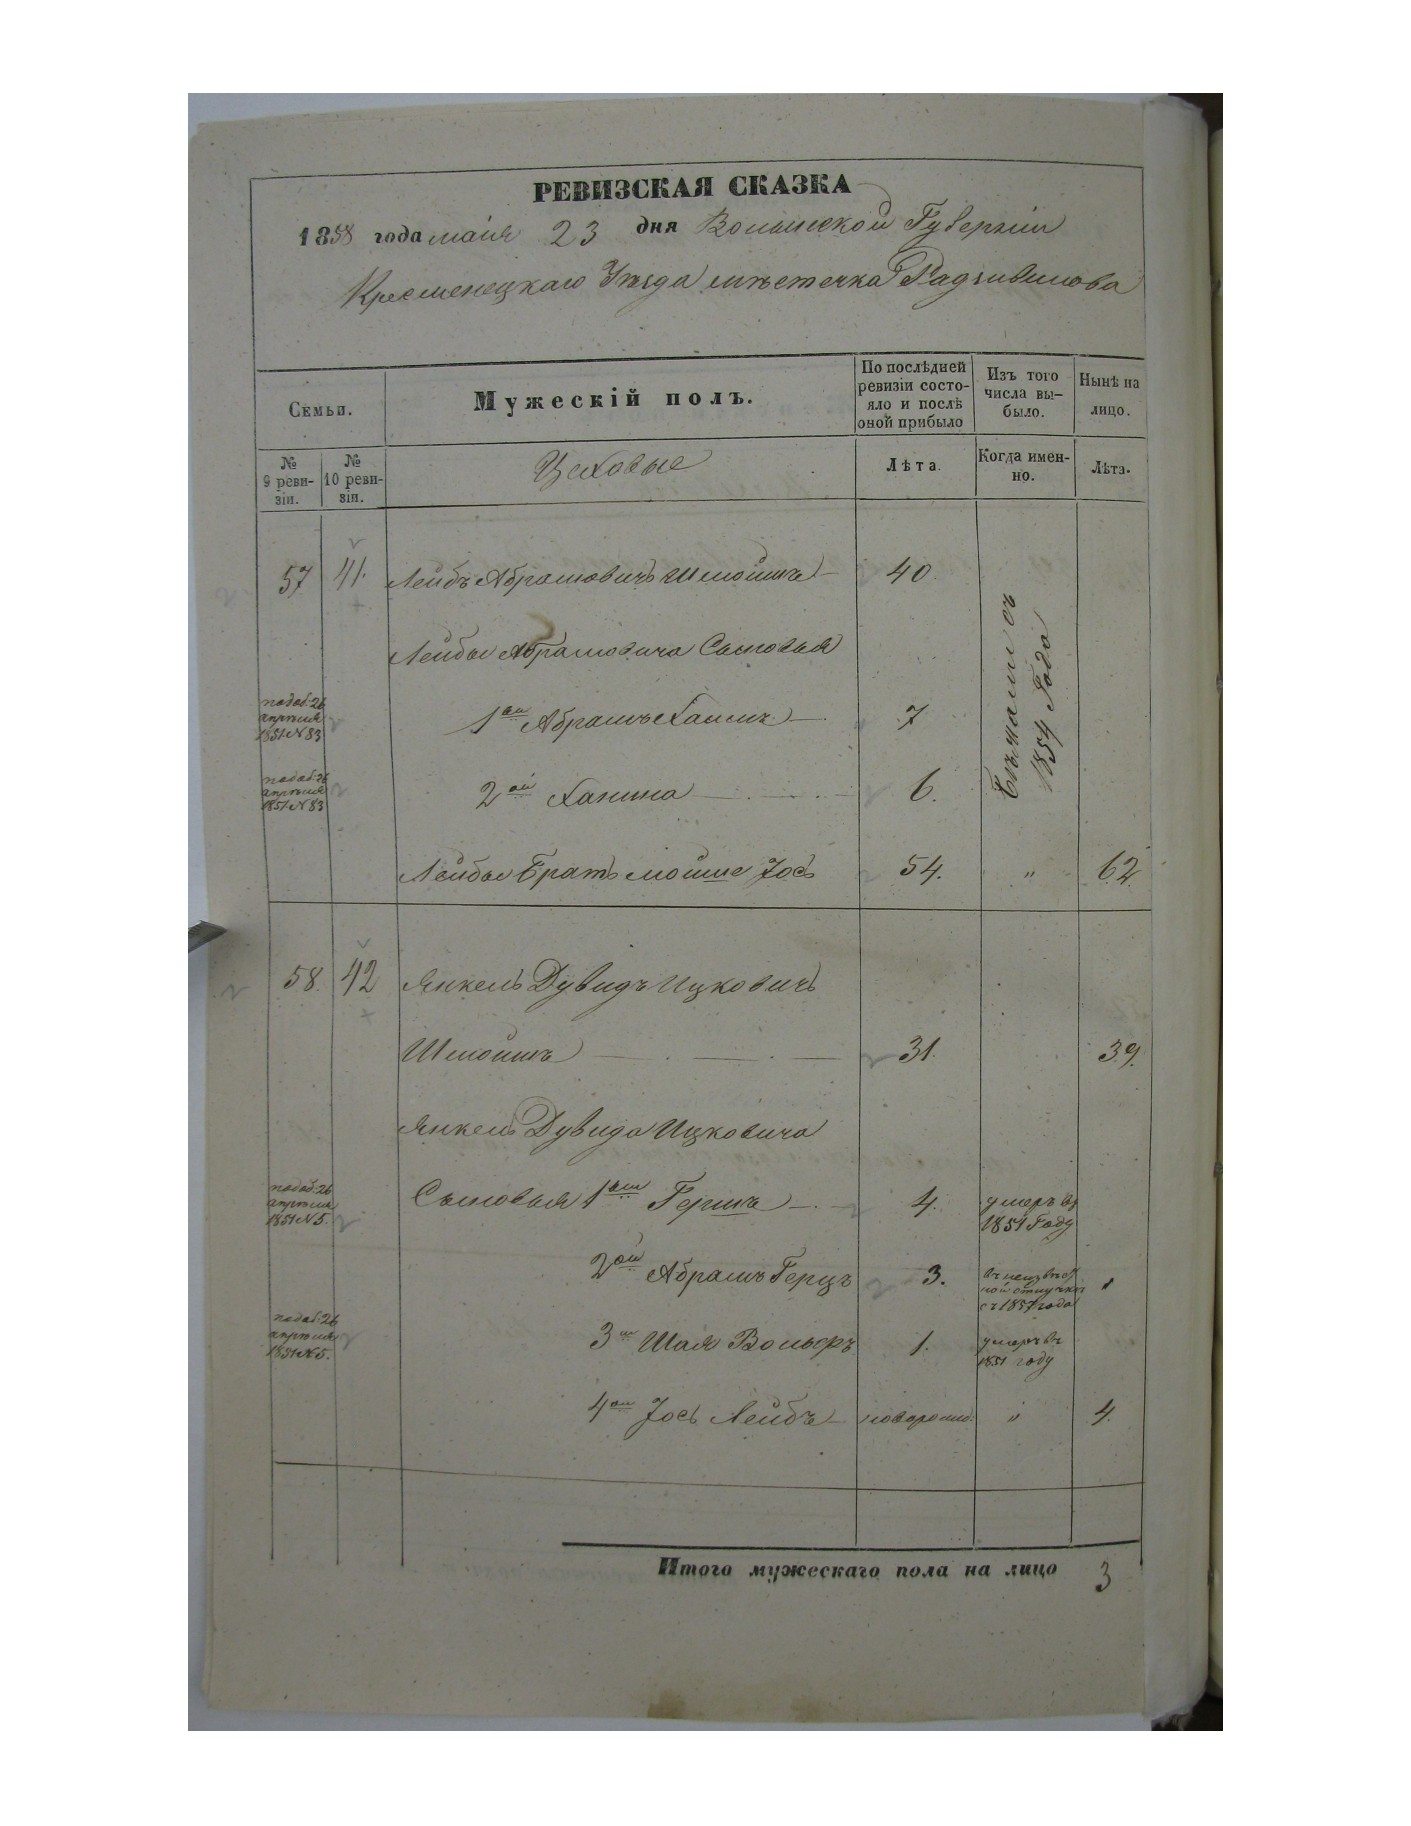 РЕВИЗСКАЯ СКАЗКА
1858 года маія 23 дня Волынской Губерніи
Кременецкаго Уѣзда мѣстечка Радзивилова
Семьи.
Мужескій полъ.
По послѣдней ревизіи состояло и послѣ оной прибыло
Изъ того числа вы-было.
Нынѣ на лицо.
№ 9 реви-зіи.
№ 10 реви-зіи.
Цеховые
Лѣта.
Когда имен-но.
Лѣта.
57 41. Лейбъ Абрамовичъ Шмойшъ 40
Лейбы Абрамовича Сыновья
Бѣжали съ 1854 Года
26 апрѣля 1851 № 83
1ый Абрамъ Хаимъ 7
26 апрѣля 1851 № 83
2ой Ханина 6.
Лейбы Братъ Мойше Іось 54. " 62.
58. 42 Янкель Дувидъ Ицковичъ
Шмойшъ 31. 39.
Янкель Дувида Ицковича
26 апрѣля 1851 № 5.
Сыновья 1ый Гершъ 4. умеръ въ 1851 Году
2ой Абрамъ Герцъ 3. въ неизвѣстной отлучкѣ съ 1857 года
26 апрѣля 1851 № 5.
3ій Шая Вольфъ 1. умеръ въ 1851 году
4ый Іось Лейбъ новорожд. " 4.
Итого мужескаго пола на лицо 3